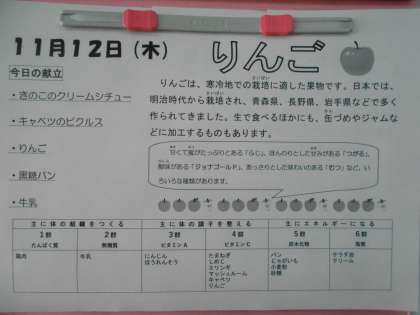 11月12日（木）
りんご
今日の献立
・きのこのクリームシチュー
・キャベツのピクルス
・りんご
・黒糖パン
・牛乳
りんごは、寒冷地での栽培に適した果物です。日本では、
明治時代から栽培され、青森県、長野県、岩手県などで多く
作られてきました。生で食べるほかにも、缶づめやジャムな
どに加工するものもあります。
甘くて蜜がたっぷりとある「ふじ」、ほんのりとした甘みがある「つがる」、
酸味がある「ジョナゴールド」、あっさりとした味わいのある「むつ」など、い
ろいろな種類があります。
主に体の組織をつくる 主に体の調子を整える 主にエネルギーになる
1群 2群 3群 4群 5群 6群
たんぱく質 無機質 ビタミンA ビタミンC 炭水化物 脂肪
鶏肉 牛乳 にんじん たまねぎ パン サラダ油
ほうれんそう しめじ じゃがいも クリーム
エリンギ 小麦粉
マッシュルーム 砂糖
キャベツ
りんご